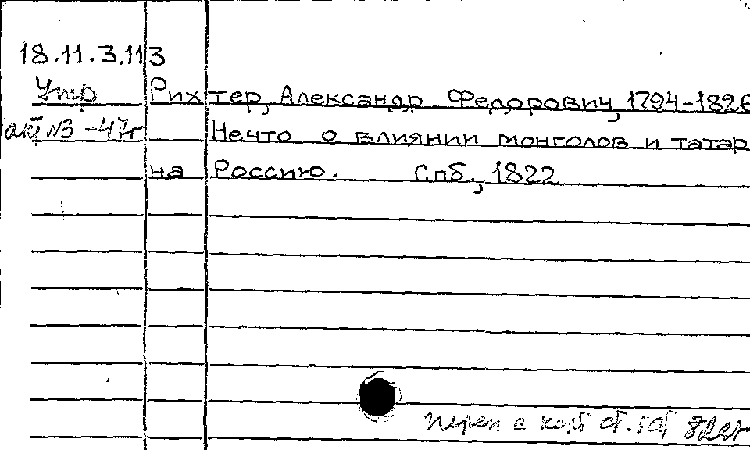 18.11.3.113
Утр Рихтер, Александр Федорович, 1794-1826
акт №3-47г Нечто о влиянии монголов и татар
на Россию. Спб., 1822